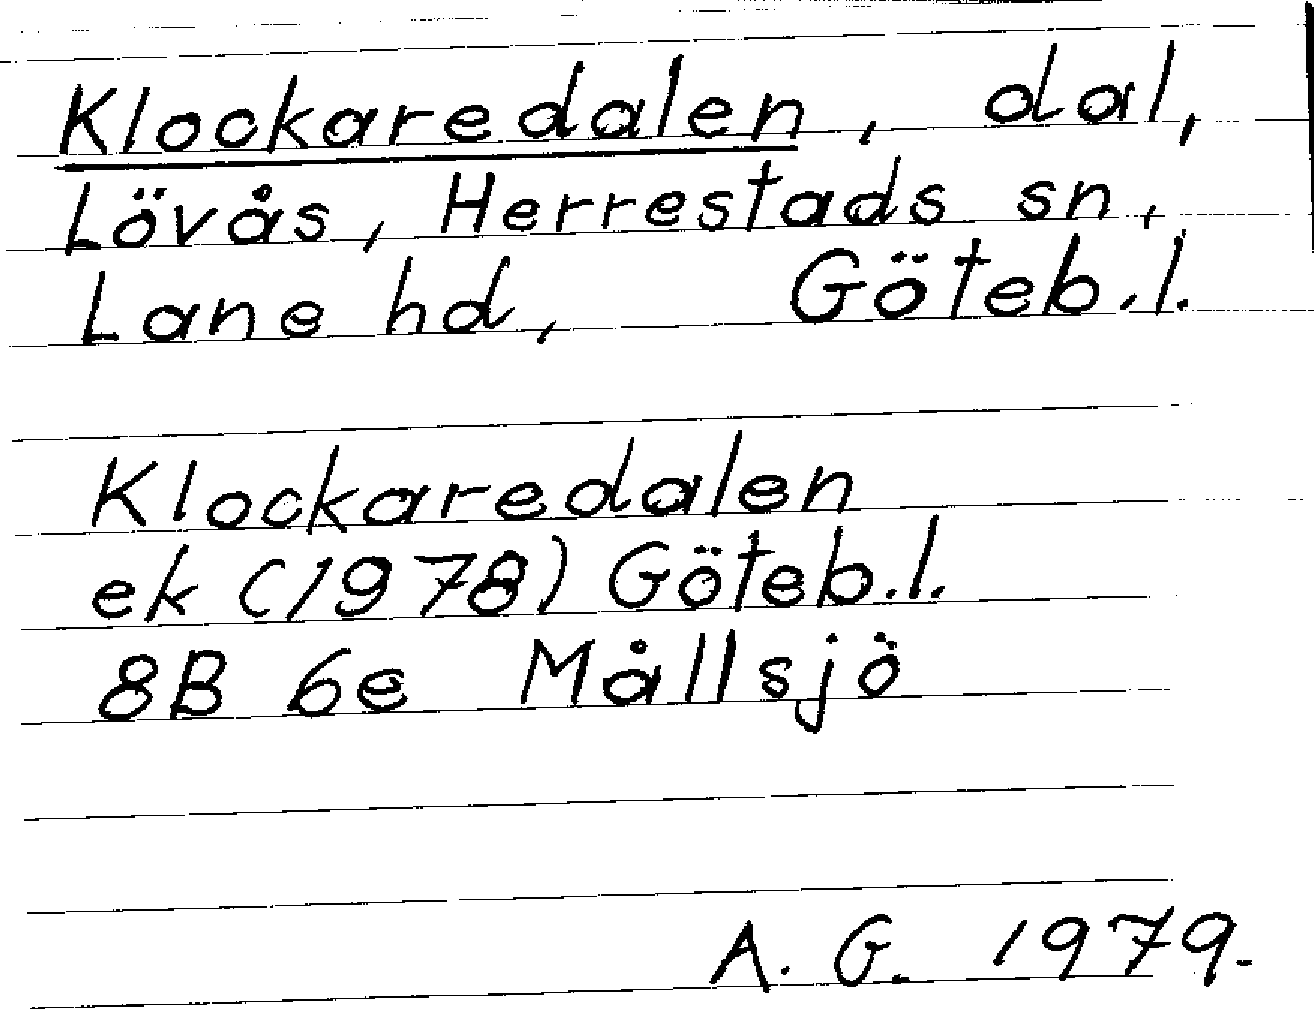 Klockaredalen, dal,
Lövås, Herrestads sn,
Lane hd, Göteb.l.
Klockaredalen
ek (1978) Göteb.l.
8B 6e Mållsjö
A. G. 1979.